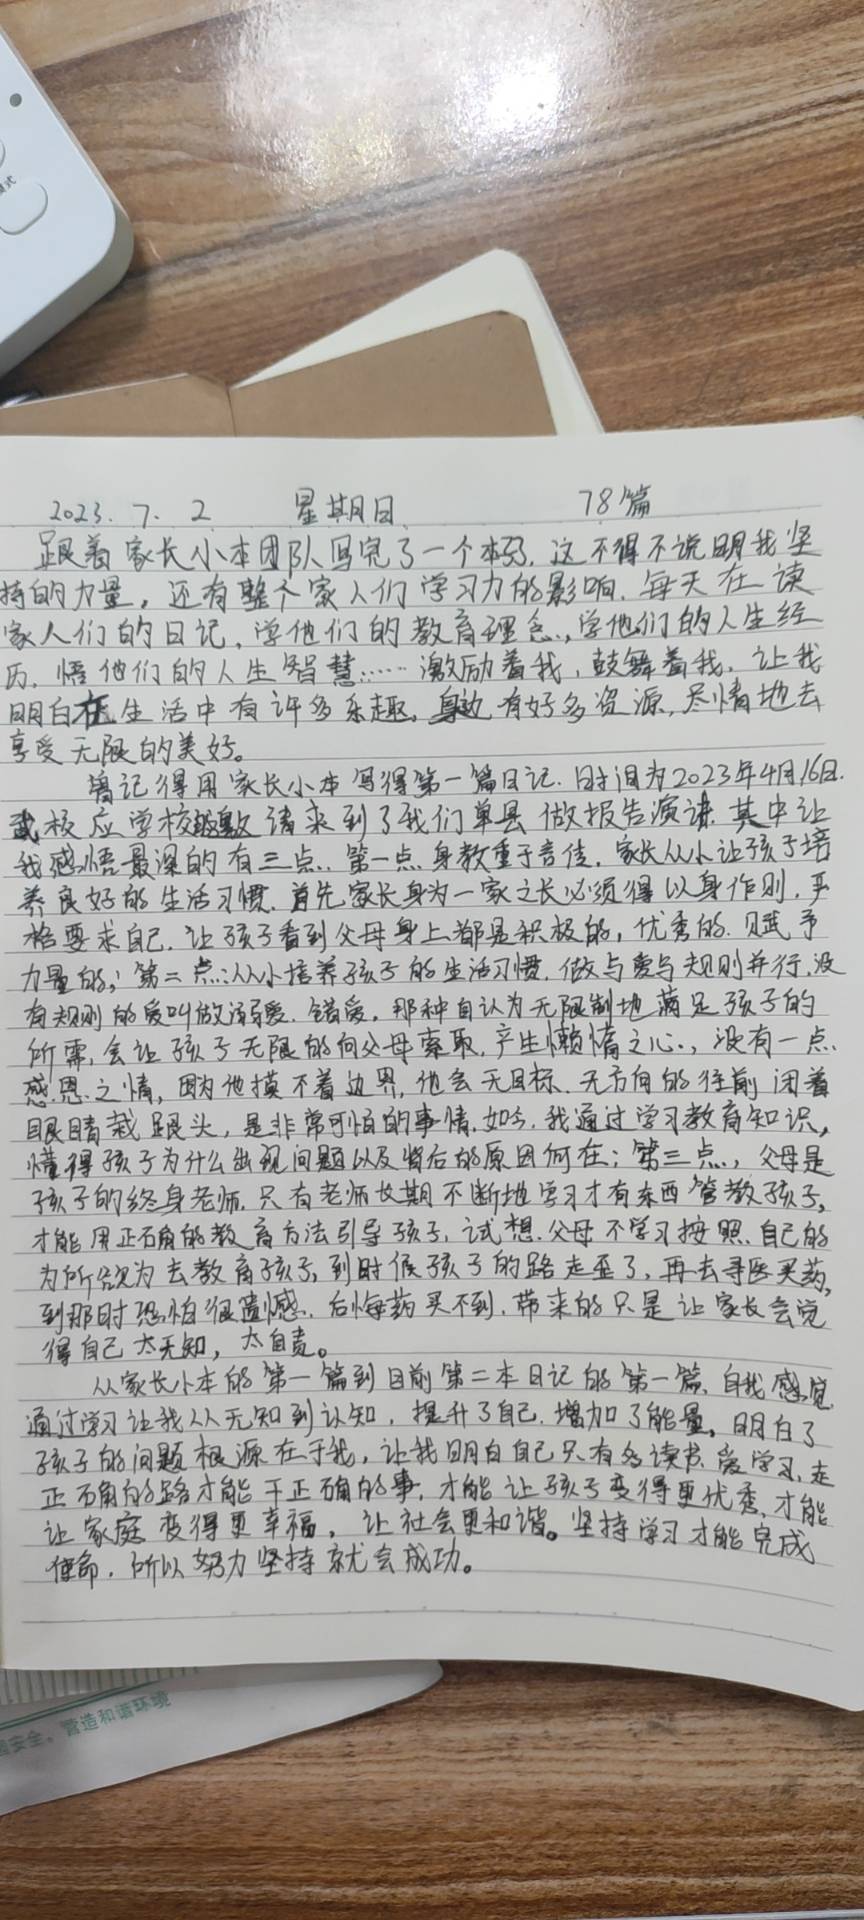 模式
2023. 7. 2 星期日 78篇
跟着家长小本团队写完了一个本码, 这不得不说明我坚
持的力量, 还有整个家人们学习力的影响, 每天在读
家人们的日记, 学他们的教育理念, 学他们的人生经
历, 悟他们的人生智慧…… 激励着我, 鼓舞着我, 让我
明白在生活中有许多乐趣, 身边有好多资源, 尽情地去
享受无限的美好。
记得用家长小本写得第一篇日记, 时间为2023年4月16日.
极应学校邀请来到了我们单县做报告演讲, 其中让
我感悟最深的有三点. 第一点身教重于言传, 家长从小让孩子培
养良好的生活习惯, 首先家长身为一家之长必须得以身作则, 严
格要求自己, 让孩子看到父母身上都是积极的, 优秀的, 赋予
力量的; 第二点:从小培养孩子的生活习惯, 做与爱与规则并行, 没
有规则的爱叫做溺爱, 错爱, 那种自认为无限制地满足孩子的
所需, 会让孩子无限的向父母索取, 产生懒惰之心, 没有一点
感恩之情, 因为他摸不着边界, 他会无目标, 无方向的往前闭着
眼睛栽跟头, 是非常可怕的事情. 如今, 我通过学习教育知识,
懂得孩子为什么出现问题以及背后的原因何在; 第三点, 父母是
孩子的终身老师, 只有老师长期不断地学习才有东西管教孩子,
才能用正确的教育方法引导孩子, 试想, 父母不学习按照自己的
为所欲为去教育孩子, 到时候孩子的路走歪了, 再去寻医买药,
到那时恐怕很遗憾, 后悔药买不到, 带来的只是让家长会觉
得自己太无知, 太自责。
从家长小本的第一篇到目前第二本日记的第一篇, 自我感觉
通过学习让我从无知到认知, 提升了自己, 增加了能量, 明白了
孩子的问题根源在于我, 让我明白自己只有多读书, 爱学习, 走
正确的路才能干正确的事, 才能让孩子变得更优秀, 才能
让家庭变得更幸福, 让社会更和谐。坚持学习才能完成
使命, 所以努力坚持就会成功。
安全, 营造和谐环境